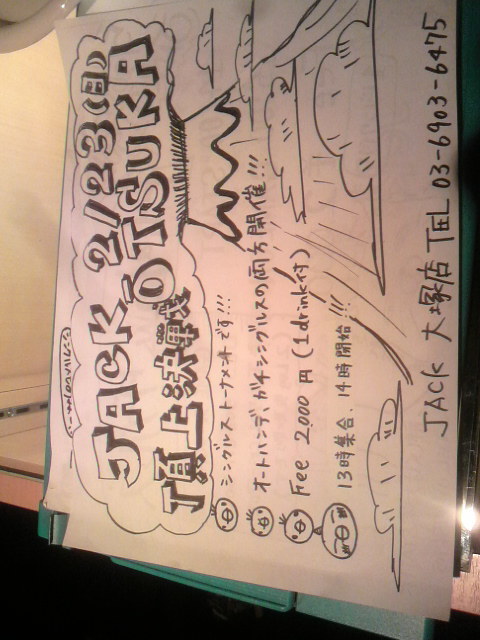 JACK 2/23(日)
ŌTSUKA
頂上決戦
シングルストーナメントです!!!
オートハンデ、ガチシングルスの両方開催!!!
Fee 2,000円(1drink付)
13時集合、14時開始!!!
JACK 大塚店 TEL 03-6903-6475